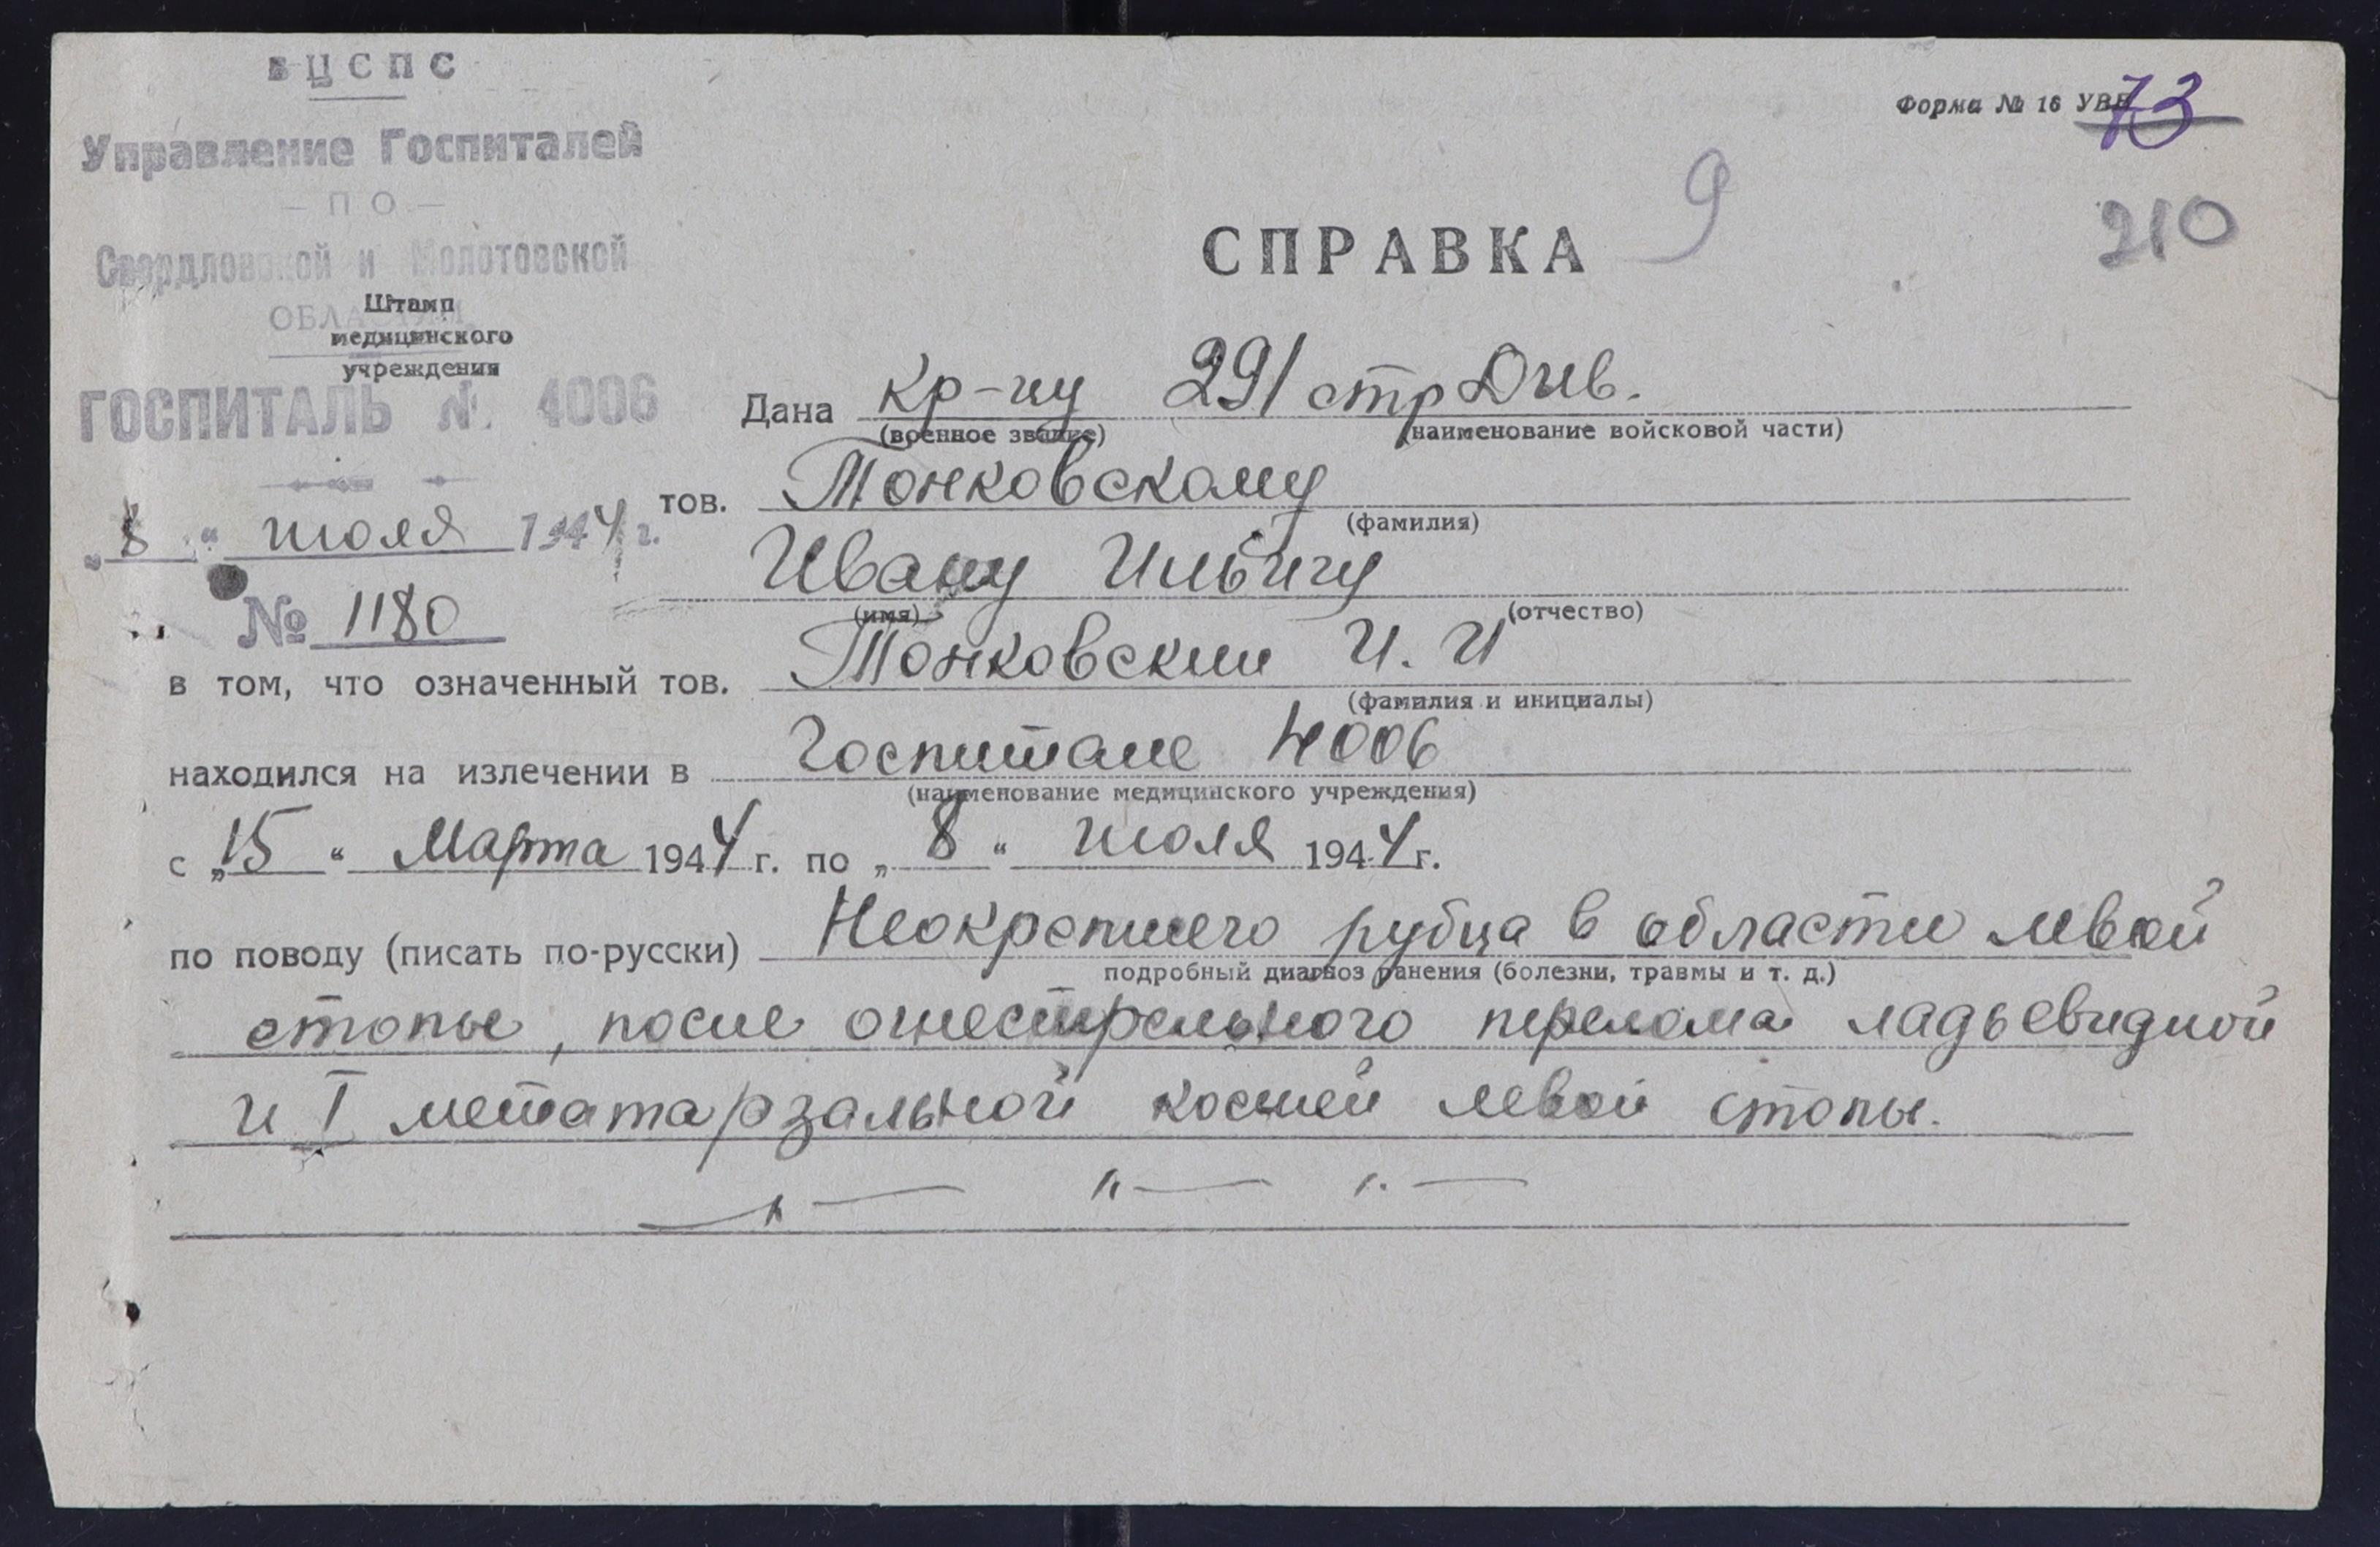 ВЦСПС
Управление Госпиталей
— ПО —
Свердловской и Молотовской
ОБЛАСТЯМ
Штамп
медицинского
учреждения
ГОСПИТАЛЬ №. 4006
„8“ июля 1944 г.
№ 1180
Форма № 16
73
9
210
СПРАВКА
Дана кр-цу 291 стр Див.
(военное звание) (наименование войсковой части)
тов. Тонковскому
(фамилия)
Ивану Ильичу
(имя) (отчество)
в том, что означенный тов. Тонковский И. И
(фамилия и инициалы)
находился на излечении в Госпитале 4006
(наименование медицинского учреждения)
с „15“ Марта 1944 г. по „8“ июля 1944 г.
по поводу (писать по-русски) Неокрепшего рубца в области левой
подробный диагноз ранения (болезни, травмы и т. д.)
стопы, после огнестрельного перелома ладьевидной
и I метатарзальной костей левой стопы.